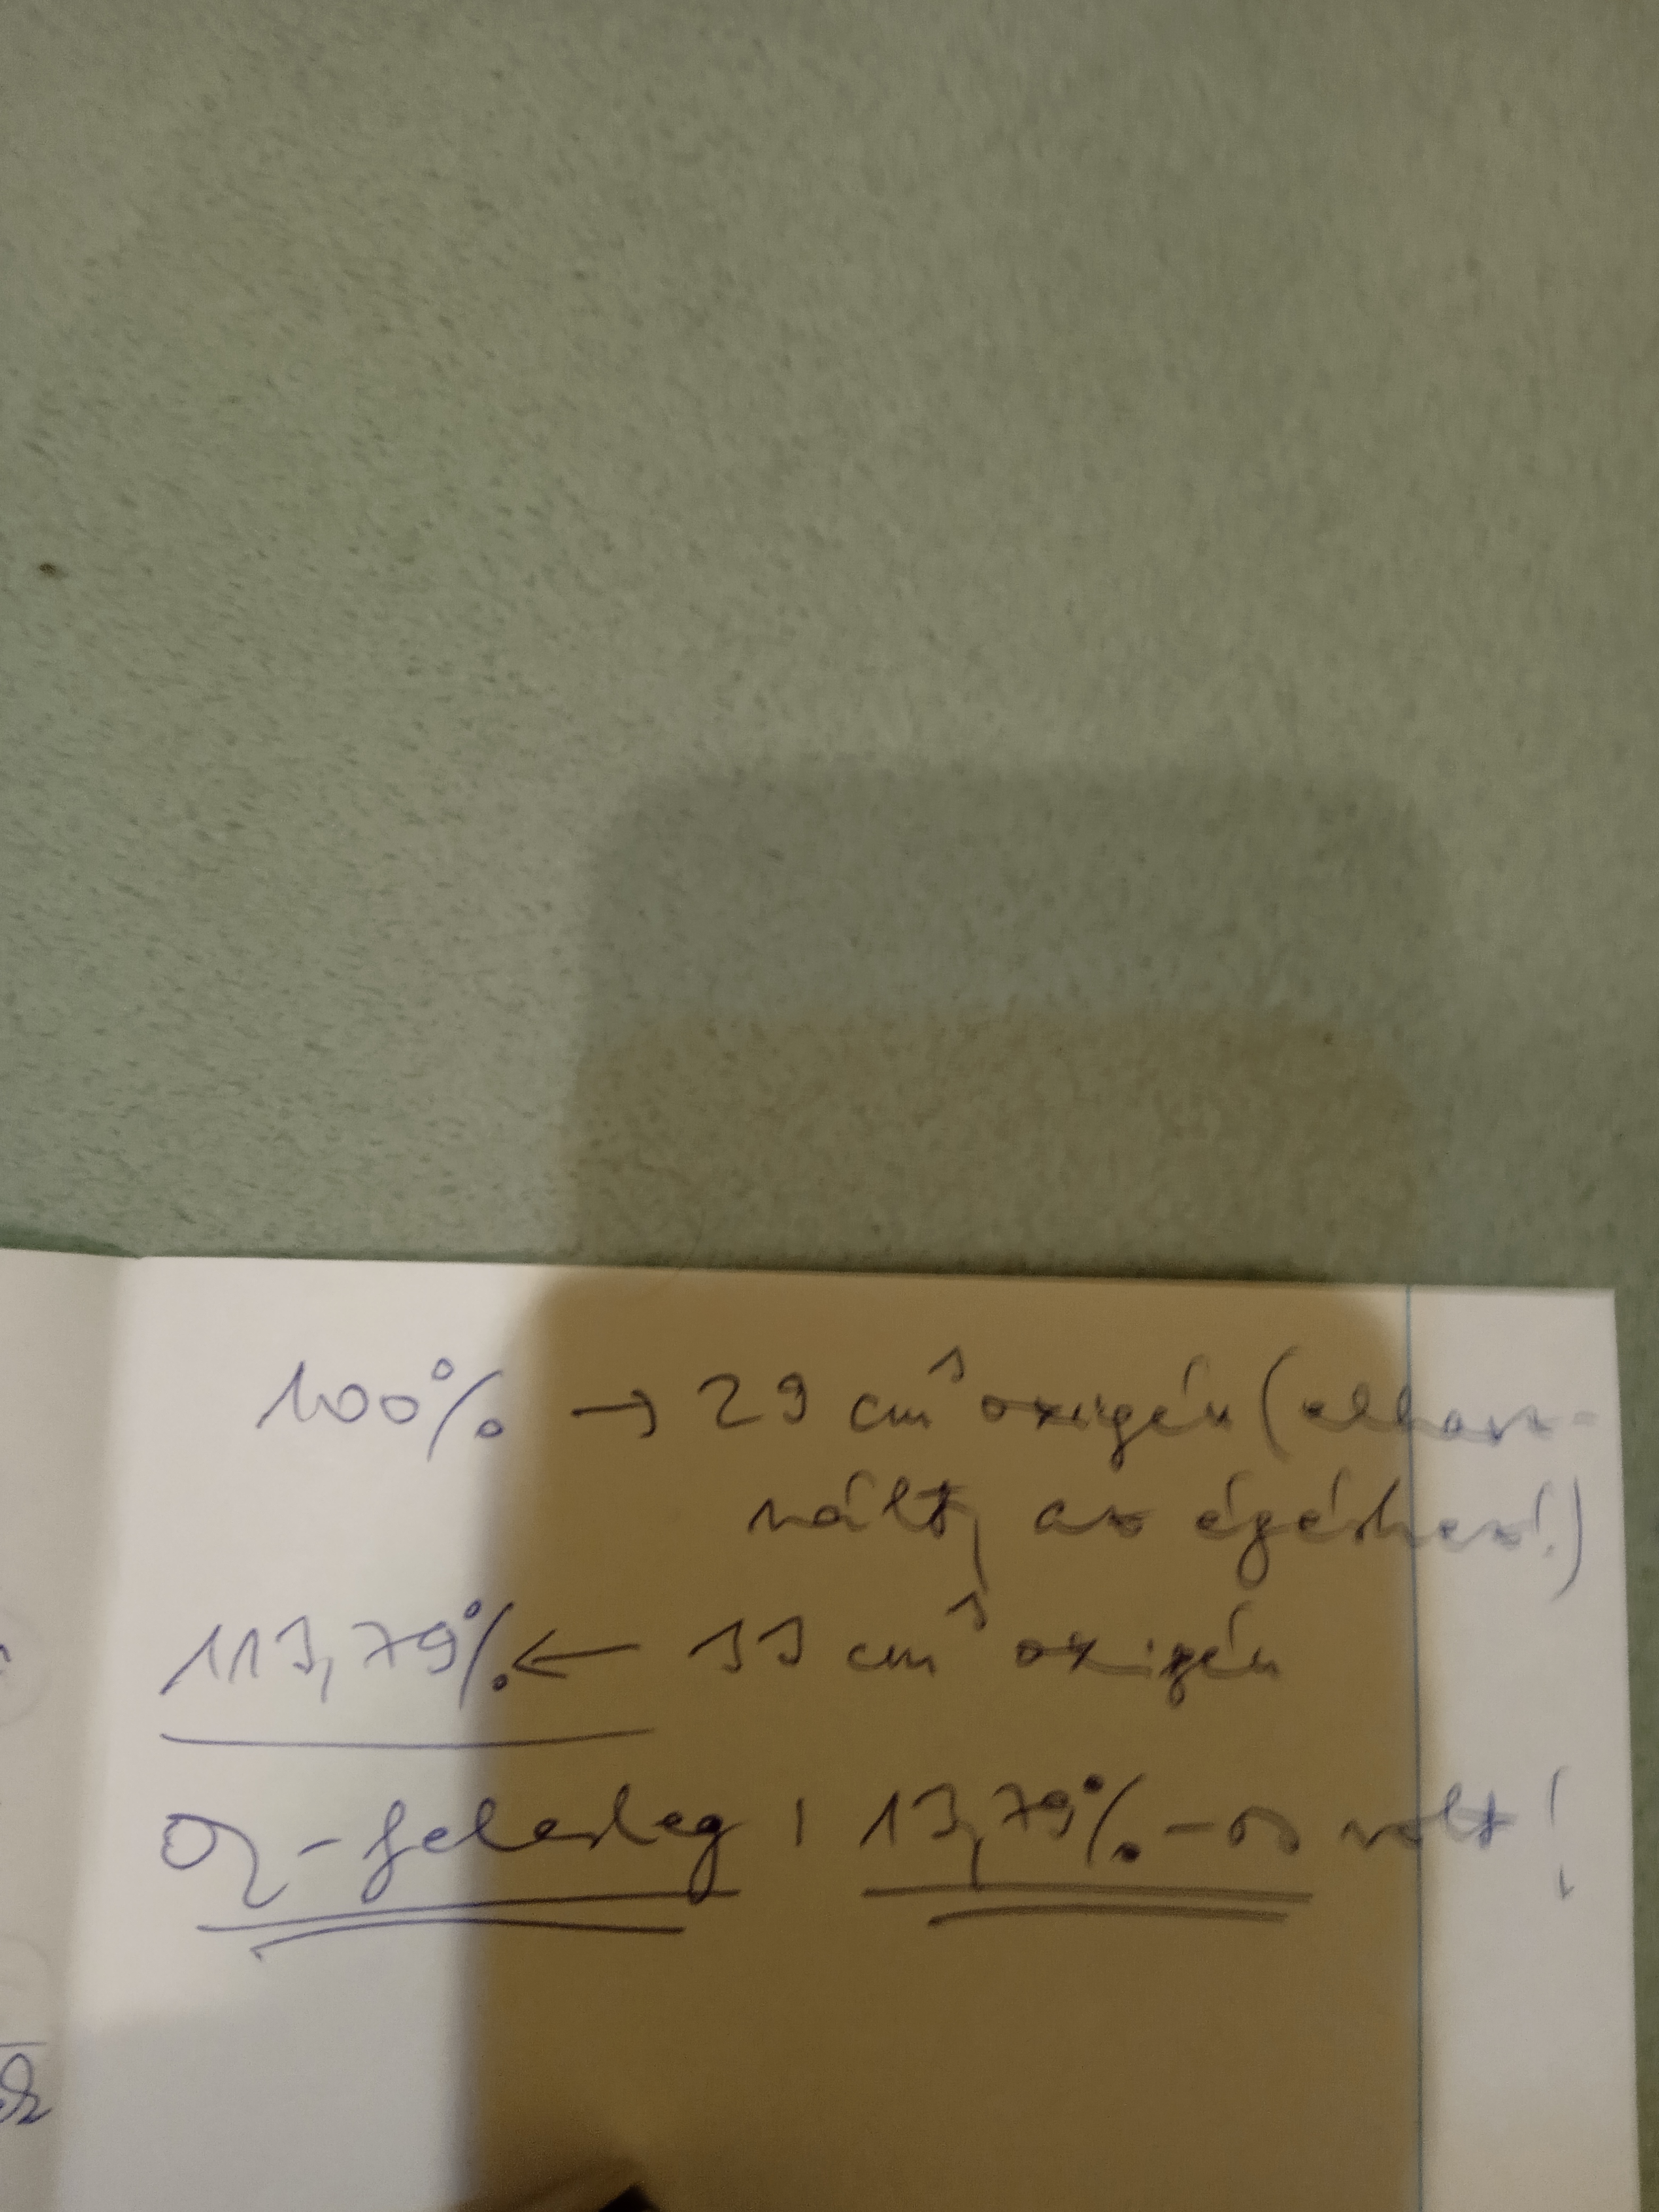 100% → 29 cm³ oxigén (elhasz-
nált, az égéshez!)
113,79% ← 33 cm³ oxigén
O₂-felesleg: 13,79%-os volt!